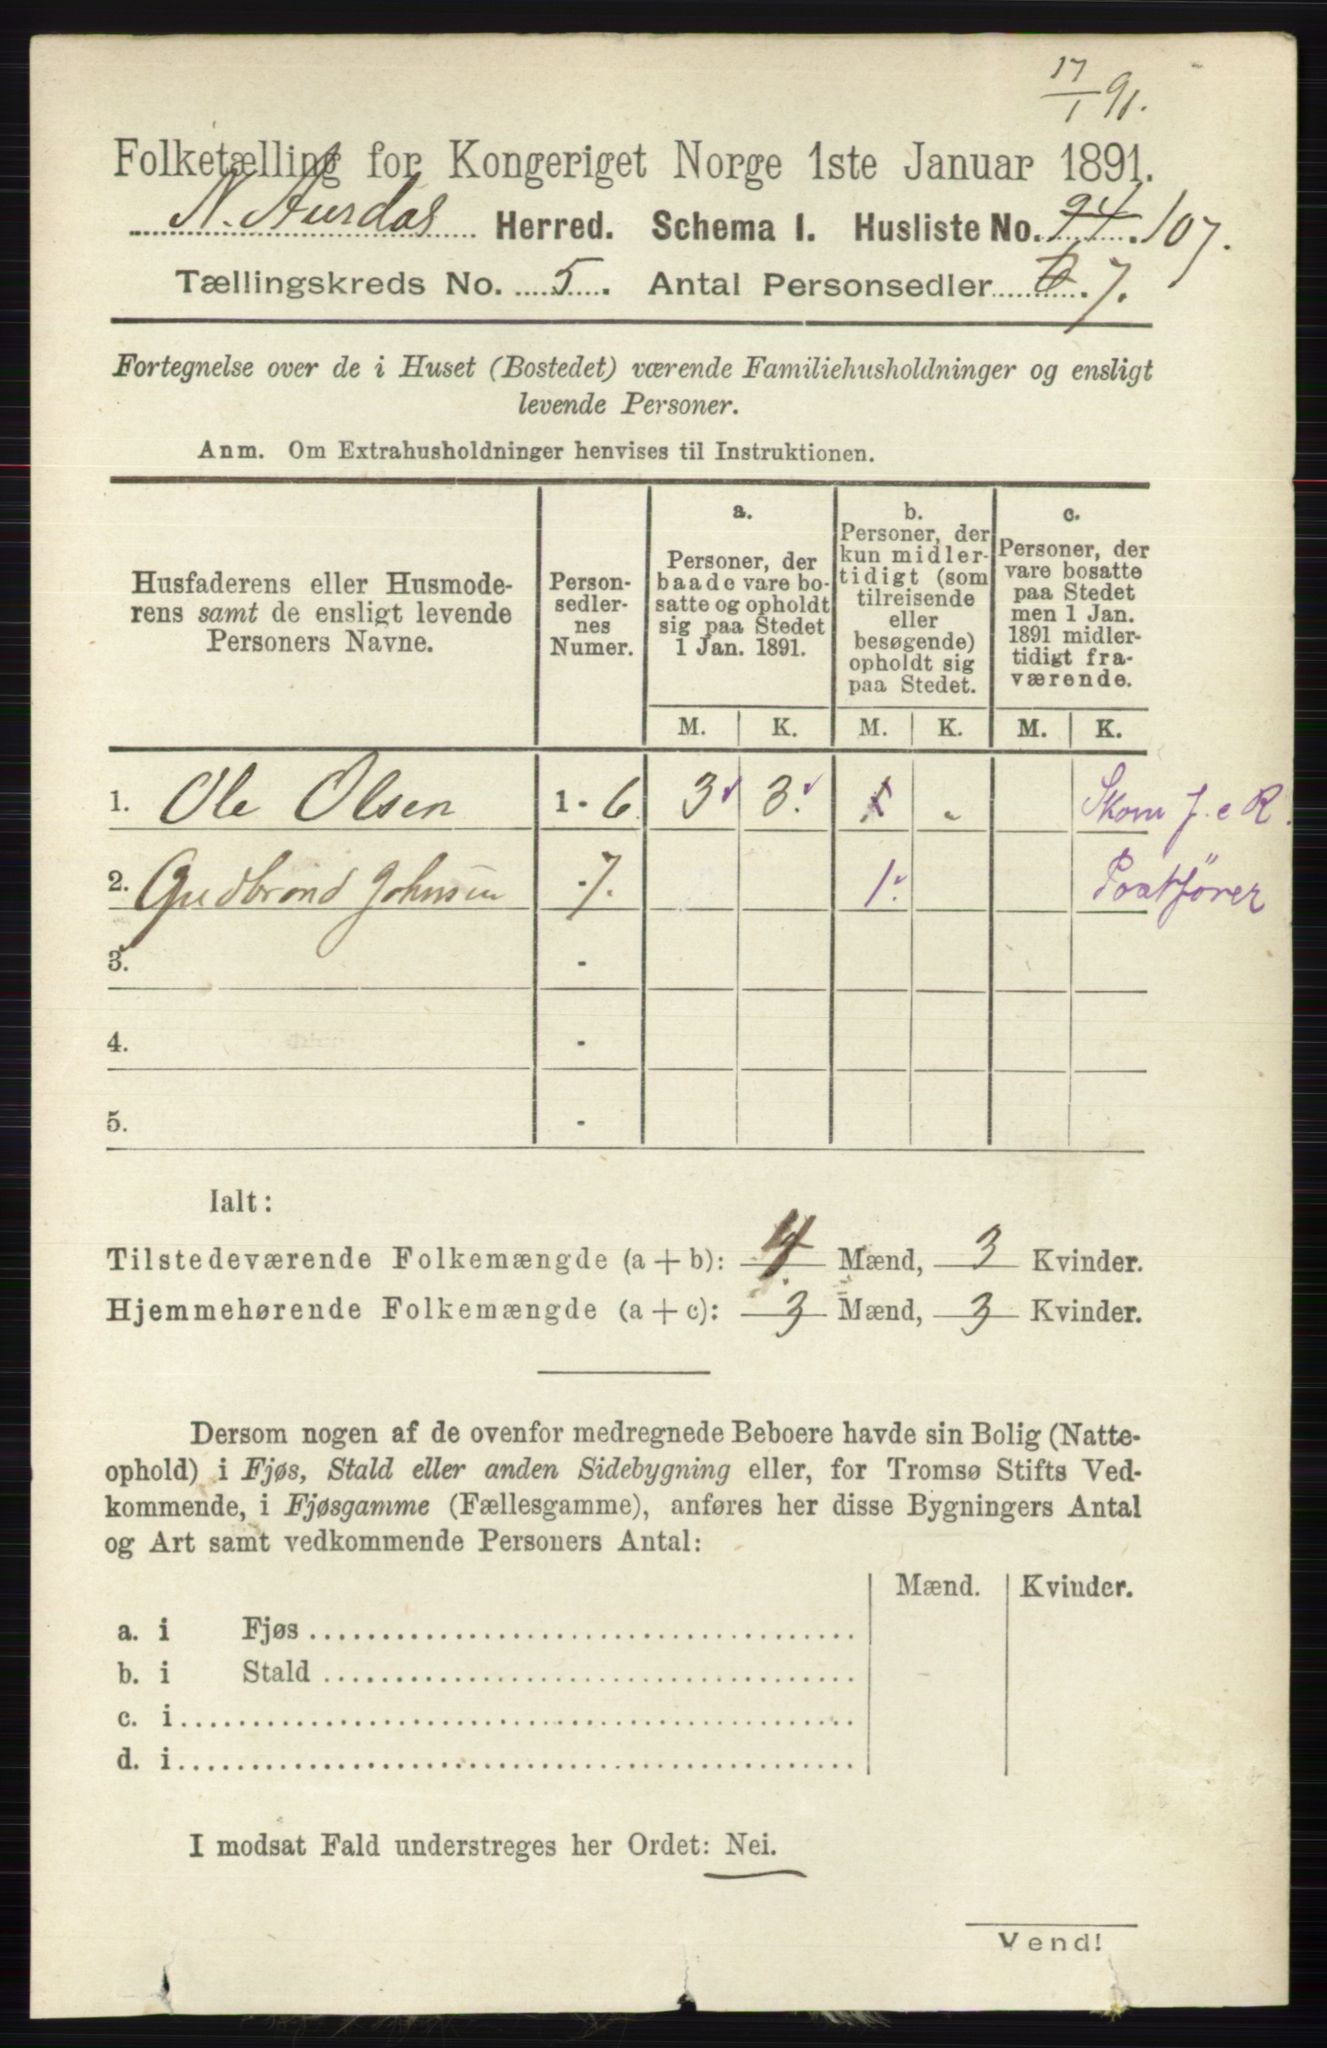 17/1 91.
Folketælling for Kongeriget Norge 1ste Januar 1891.
N. Aurdal Herred. Schema I. Husliste No. 94. 107.
Tællingskreds No. 5. Antal Personsedler 6. 7.
Fortegnelse over de i Huset (Bostedet) værende Familiehusholdninger og ensligt
levende Personer.
Anm. Om Extrahusholdninger henvises til Instruktionen.
Husfaderens eller Husmode-
rens samt de ensligt levende
Personers Navne.
Person-
sedler-
nes
Numer.
a.
Personer, der
baade vare bo-
satte og opholdt
sig paa Stedet
1 Jan. 1891.
b.
Personer, der
kun midler-
tidigt (som
tilreisende
eller
besøgende)
opholdt sig
paa Stedet.
c.
Personer, der
vare bosatte
paa Stedet
men 1 Jan.
1891 midler-
tidigt fra-
værende.
M. K. M. K. M. K.
1. Ole Olsen 1 - 6 3 3. 1 " Skom J. e R.
2. Gudbrand Johnsen - 7. 1. Postfører
3. -
4. -
5. -
Ialt:
Tilstedeværende Folkemængde (a + b): 4 Mænd, 3 Kvinder.
Hjemmehørende Folkemængde (a + c): 3 Mænd, 3 Kvinder.
Dersom nogen af de ovenfor medregnede Beboere havde sin Bolig (Natte-
ophold) i Fjøs, Stald eller anden Sidebygning eller, for Tromsø Stifts Ved-
kommende, i Fjøsgamme (Fællesgamme), anføres her disse Bygningers Antal
og Art samt vedkommende Personers Antal:
Mænd. Kvinder.
a. i Fjøs
b. i Stald
c. i
d. i
I modsat Fald understreges her Ordet: Nei.
Vend!